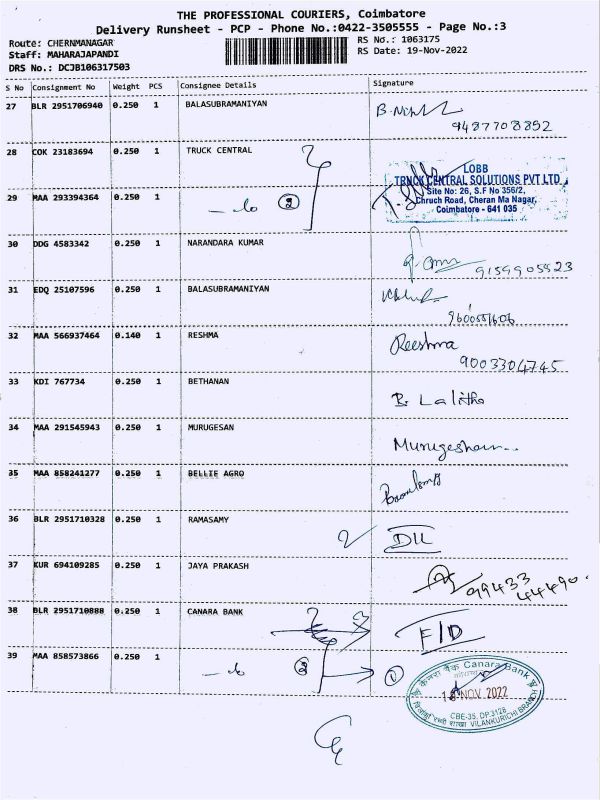 THE PROFESSIONAL COURIERS, Coimbatore
Delivery Runsheet - PCP - Phone No.:0422-3505555 - Page No.:3
Route: CHERNMANAGAR
Staff: MAHARAJAPANDI
DRS No.: DCJB106317503
RS No.: 1063175
RS Date: 19-Nov-2022
S No Consignment No Weight PCS Consignee Details Signature
27 BLR 2951706940 0.250 1 BALASUBRAMANIYAN
9487708892
28 COK 23183694 0.250 1 TRUCK CENTRAL
LOBB
TRUCK CENTRAL SOLUTIONS PVT LTD.,
Site No: 26, S.F No 356/2,
Chruch Road, Cheran Ma Nagar,
Coimbatore - 641 035
29 MAA 293394364 0.250 1
2
30 DDG 4583342 0.250 1 NARANDARA KUMAR
9159905523
31 EDQ 25107596 0.250 1 BALASUBRAMANIYAN
9600551606
32 MAA 566937464 0.140 1 RESHMA
Reeshma
9003304745
33 KDI 767734 0.250 1 BETHANAN
B. Lalitha
34 MAA 291545943 0.250 1 MURUGESAN
35 MAA 858241277 0.250 1 BELLIE AGRO
36 BLR 2951710328 0.250 1 RAMASAMY
37 KUR 694109285 0.250 1 JAYA PRAKASH
99433
44490
38 BLR 2951710888 0.250 1 CANARA BANK
F/D
39 MAA 858573866 0.250 1
1
केनरा बैंक Canara Bank
NOV 2022
CBE-35, DP.3128
VILANKURICHI BRANCH